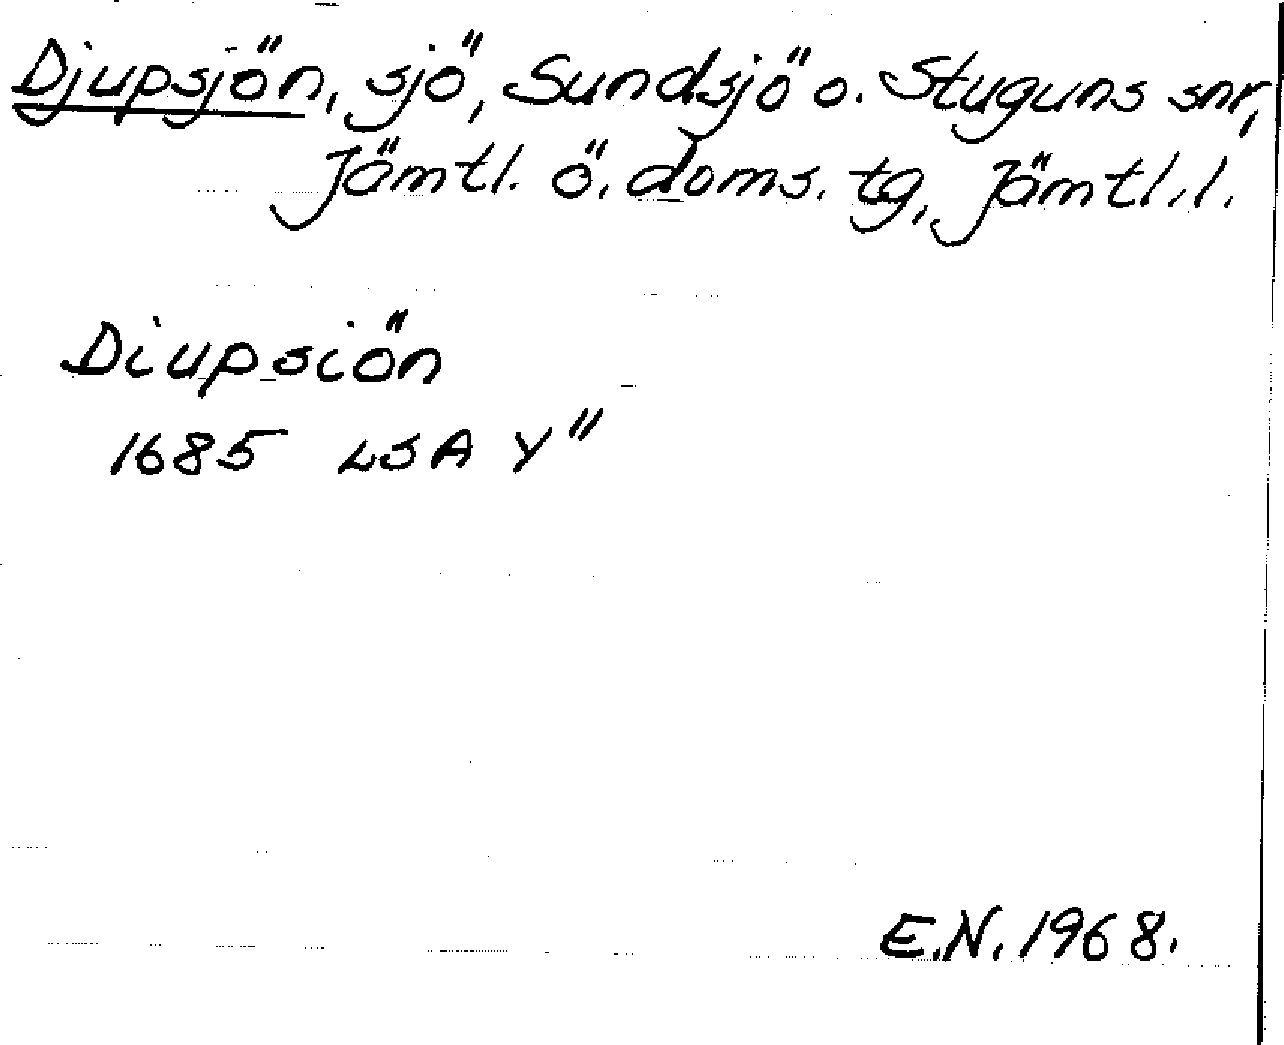 Djupsjön, sjö, Sundsjö o. Stuguns snr,
Jämtl. ö. doms. tg, Jämtl. l.
Diupsiön
1685 LSA Y"
E.N. 1968.